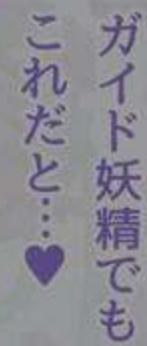 ガイド妖精でも
これだと…♥